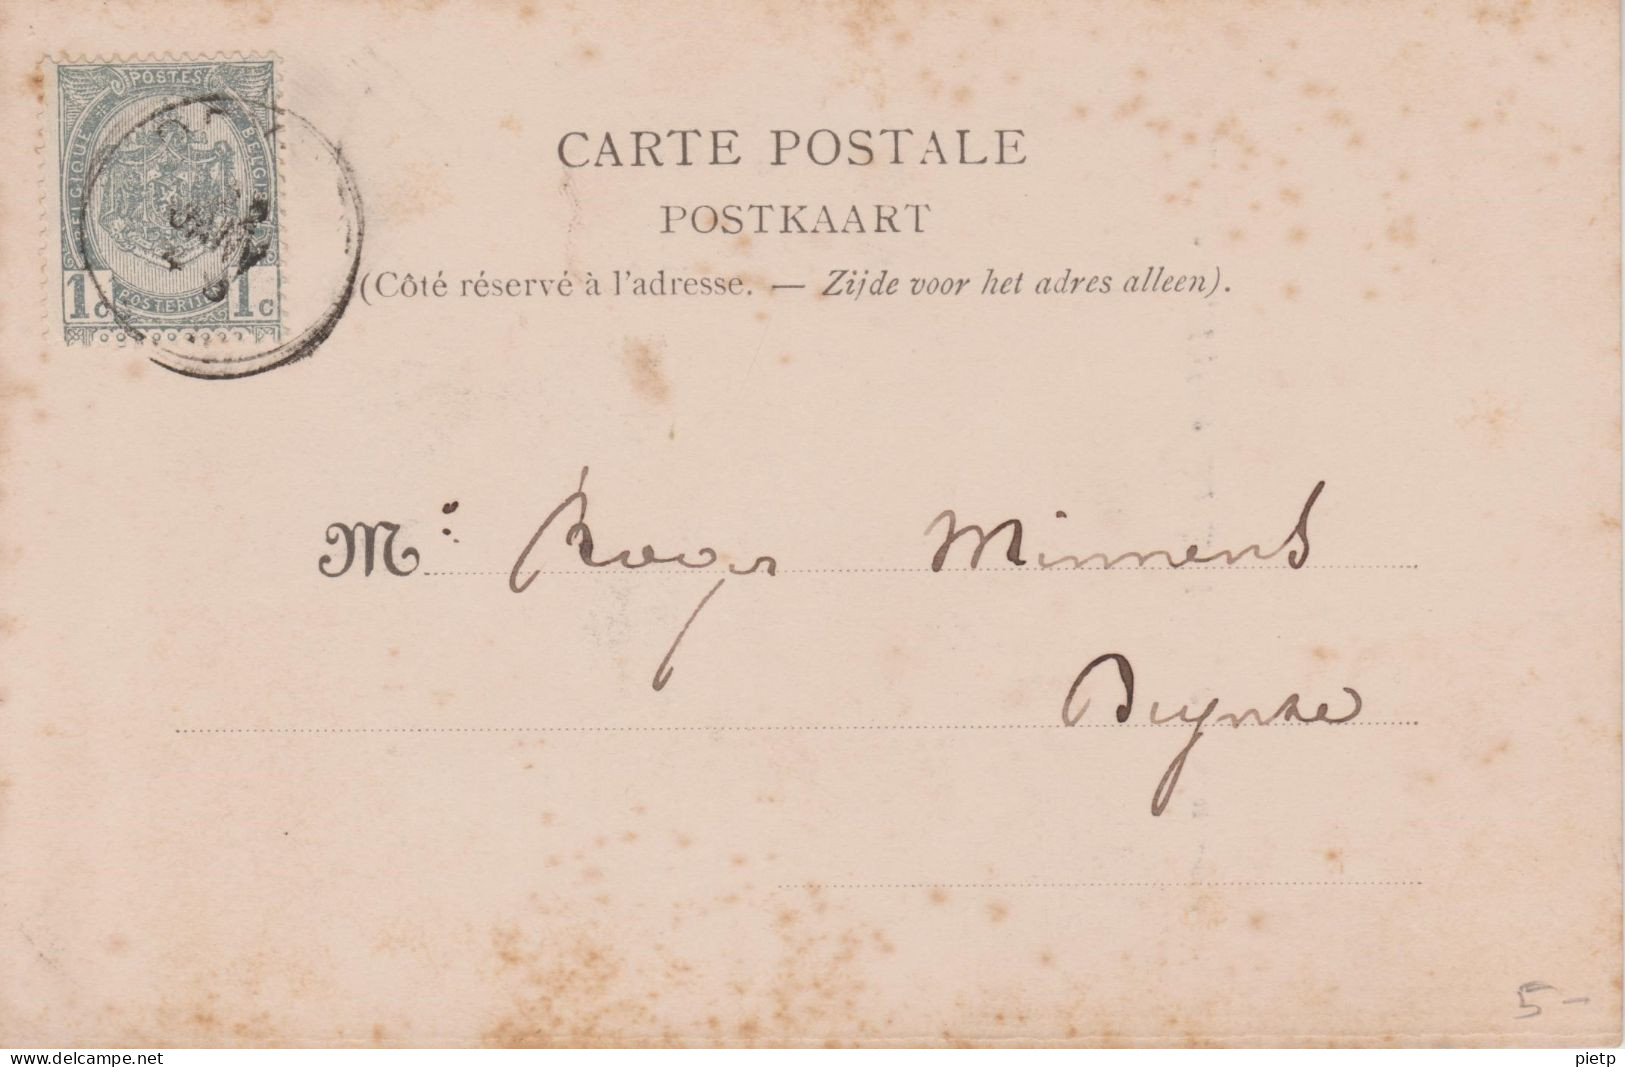 POSTES
BELGIQUE
BELGIE
1c POSTERIJEN 1c
CARTE POSTALE
POSTKAART
(Côté réservé à l'adresse. — Zijde voor het adres alleen).
M. Roger Minnens
5-
www.delcampe.net
pietp